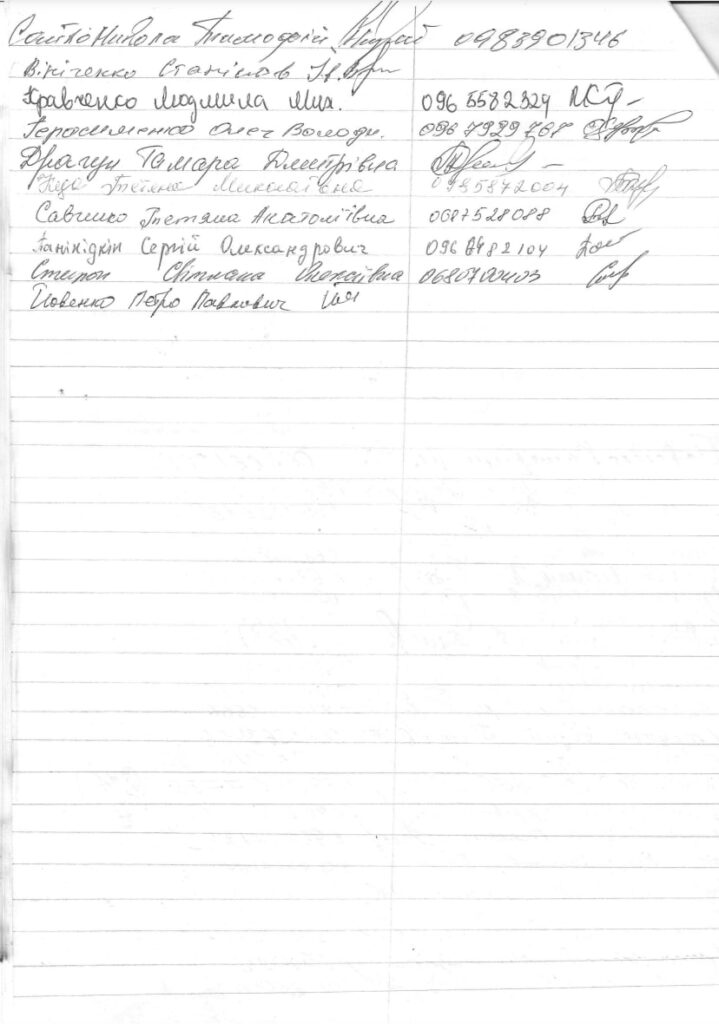 Сайко Микола Тимофій 0983901346
Вініченко Станіслав
Кравченко Людмила Мих. 096 5582329
Герасименко Олег Володи. 096 7929768
Драгун Тамара Дмитрівна
Тетяна Миколаївна 0985872004
Савчинко Тетяна Анатоліївна 0687528088
Панікідкін Сергій Олександрович 096 8482104
Світлана Олексіївна
Йовенко Петро Павлович